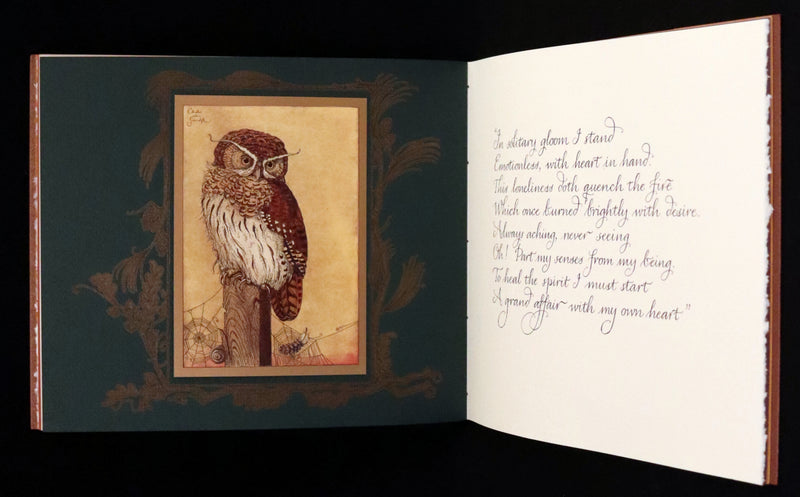 "In solitary gloom I stand
Emotionless, with heart in hand.
This loneliness doth quench the fire
Which once burned brightly with desire.
Always aching, never seeing
Oh! Part my senses from my being,
To heal the spirit I must start
A grand affair with my own heart"